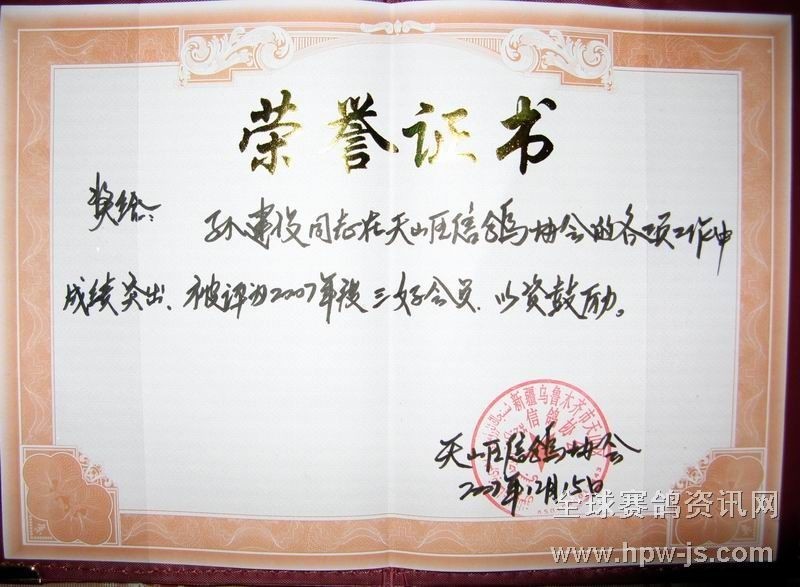 荣誉证书
奖给:
孙建俊同志在天山区信鸽协会的各项工作中
成绩突出、被评为2007年度三好会员.以资鼓励。
新疆乌鲁木齐市天山区
信鸽协会
天山区信鸽协会
2007年12月15日
全球赛鸽资讯网
www.hpw-js.com